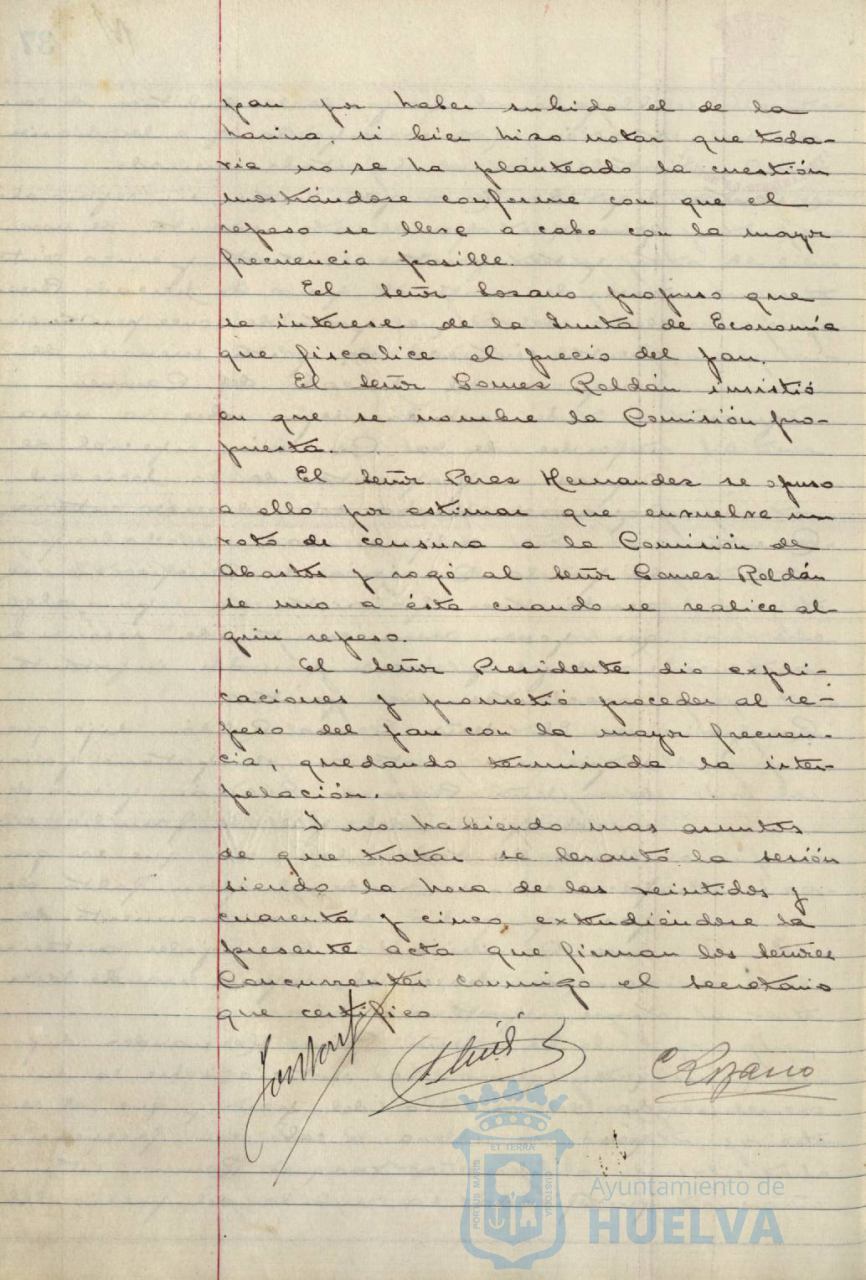 pan por haber subido el de la
harina, si bien hizo notar que toda-
via no se ha planteado la cuestión
mostrándose conforme con que el
repeso se lleve a cabo con la mayor
frecuencia posible.
El Señor Lozano propuso que
se interese de la Junta de Economía
que fiscalice el precio del pan.
El Señor Gomez Roldán insistió
en que se nombre la Comisión pro-
puesta.
El Señor Perez Hernandez se opuso
a ello por estimar que envuelve un
voto de censura a la Comisión de
Abastos y rogó al Señor Gomez Roldán
se una a ésta cuando se realice al-
gún repeso.
El Señor Presidente dio expli-
caciones y prometió proceder al re-
peso del pan con la mayor frecuen-
cia, quedando terminada la inter-
pelación.
Y no habiendo mas asuntos
de que tratar se levantó la sesión
siendo la hora de las veintidos y
cuarenta y cinco, extendiéndose la
presente acta que firman los Señores
Concurrentes conmigo el Secretario
que certifico
C Lozano
PORTUS MARIS ET TERRÆ CUSTODIA
Ayuntamiento de
HUELVA